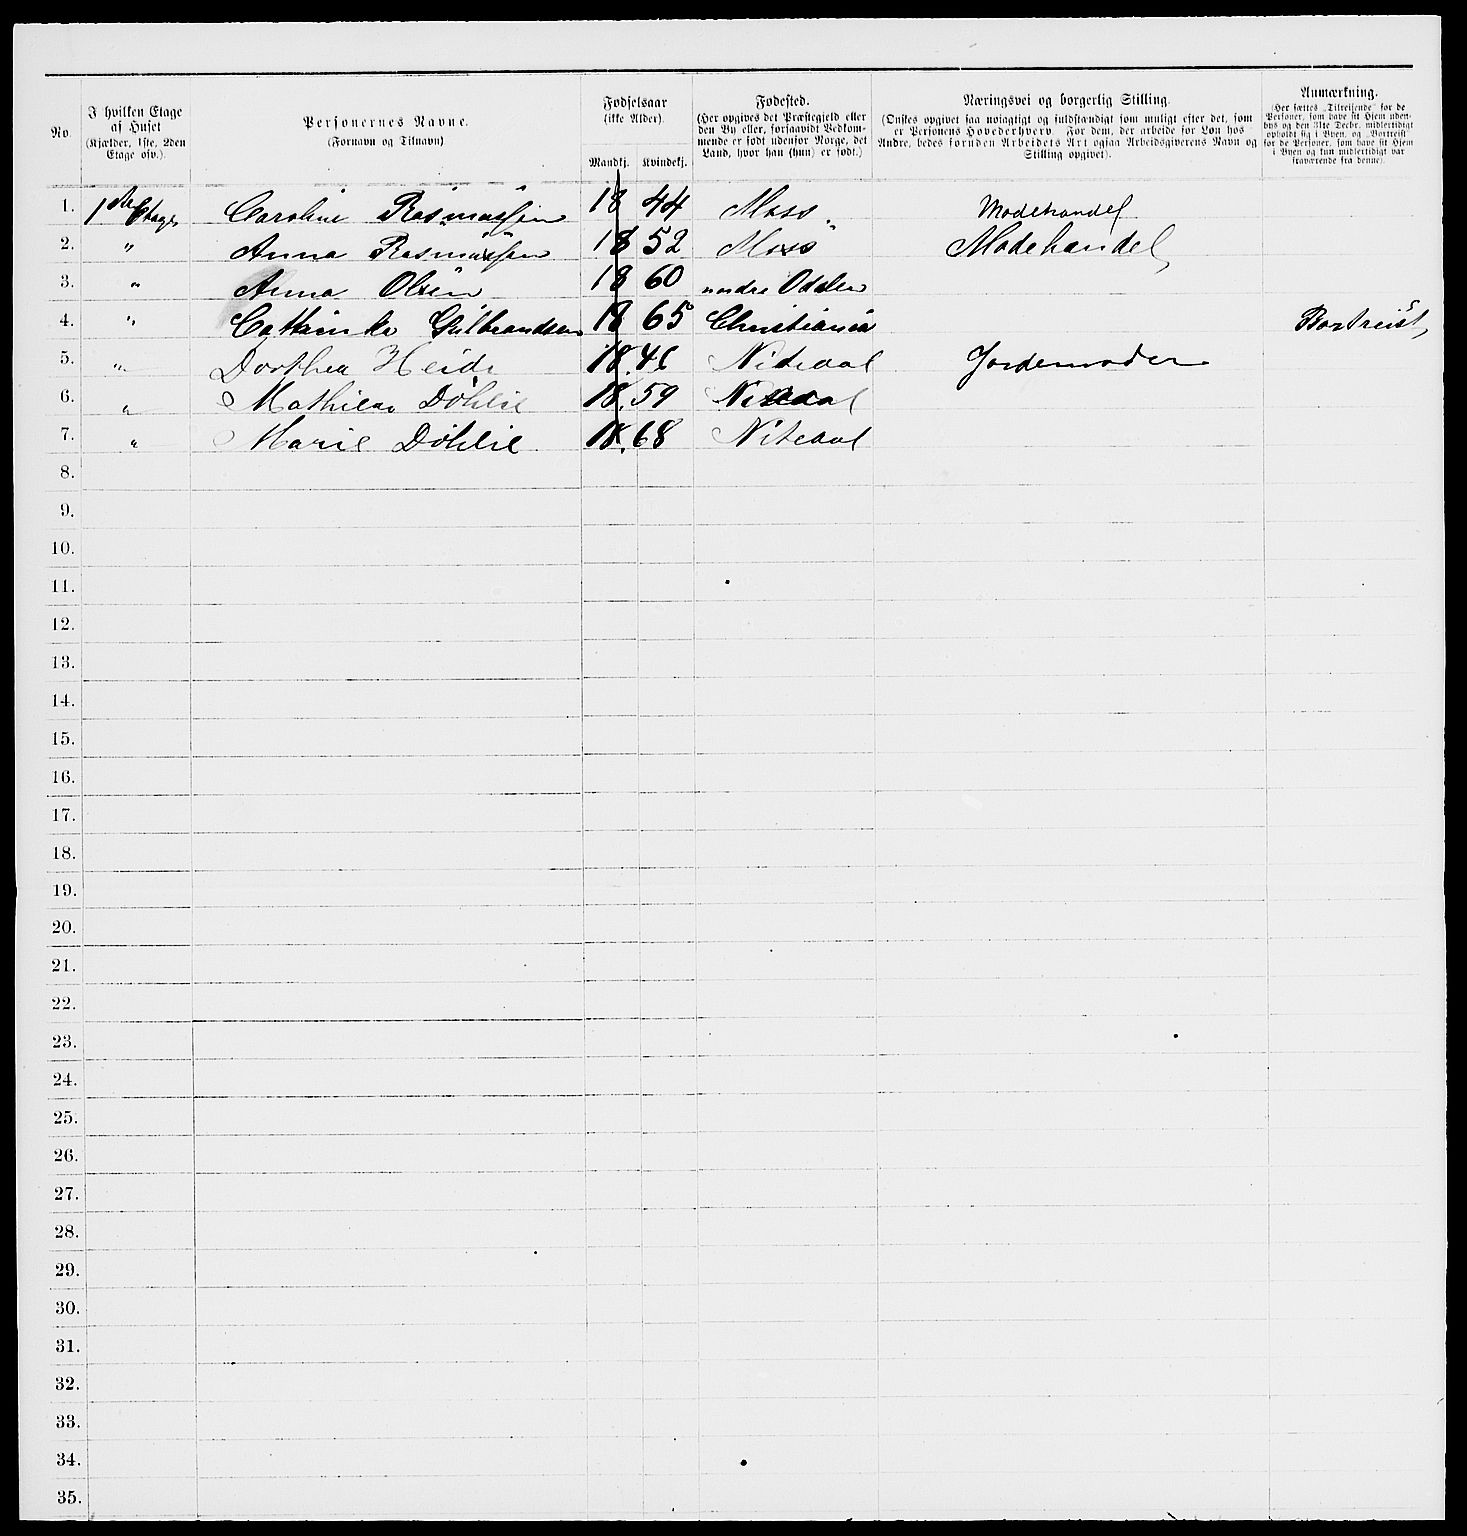 No.
I hvilken Etage
af Huset
(Kjælder, 1ste, 2den
Etage osv.).
Personernes Navne.
(Fornavn og Tilnavn)
Fødselsaar
(ikke Alder).
Mandkj.
Kvindekj.
Fødested.
(Her opgives det Præstegjeld eller
den By eller, forsaavidt Vedkom-
mende er født udenfor Norge, det
Land, hvor han (hun) er født.)
Næringsvei og borgerlig Stilling.
(Ønskes opgivet saa nøiagtigt og fuldstændigt som muligt efter det, som
er Personens Hovederhverv. For dem, der arbeide for Løn hos
Andre, bedes foruden Arbeidets Art ogsaa Arbeidsgiverens Navn og
Stilling opgivet).
Anmærkning.
(Her sættes „Tilreisende" for de
Personer, som have sit Hjem uden-
bys og den 31te Decbr. midlertidigt
opholdt sig i Byen, og „Bortreist"
for de Personer, som have sit Hjem
i Byen og kun midlertidigt var
fraværende fra denne).
1. 1ste Etage Caroline Rasmussen 1844 Moss. Modehandel
2. " Anna Rasmussen 1852 Moss Modehandel
3. " Anna Olsen 1860 Odalen
4. " Cathinka Gulbrandsen 1865 Christiania Bortreist
5. " Dorthea Heide 18.46 Nitedal Jordemoder
6. " Mathilde Döhlie 18.59 Nitedal
7. " Marie Döhlie 18.68 Nitedal
8.
9.
10.
11.
12.
13.
14.
15.
16.
17.
18.
19.
20.
21.
22.
23.
24.
25.
26.
27.
28.
29.
30.
31.
32.
33.
34.
35.